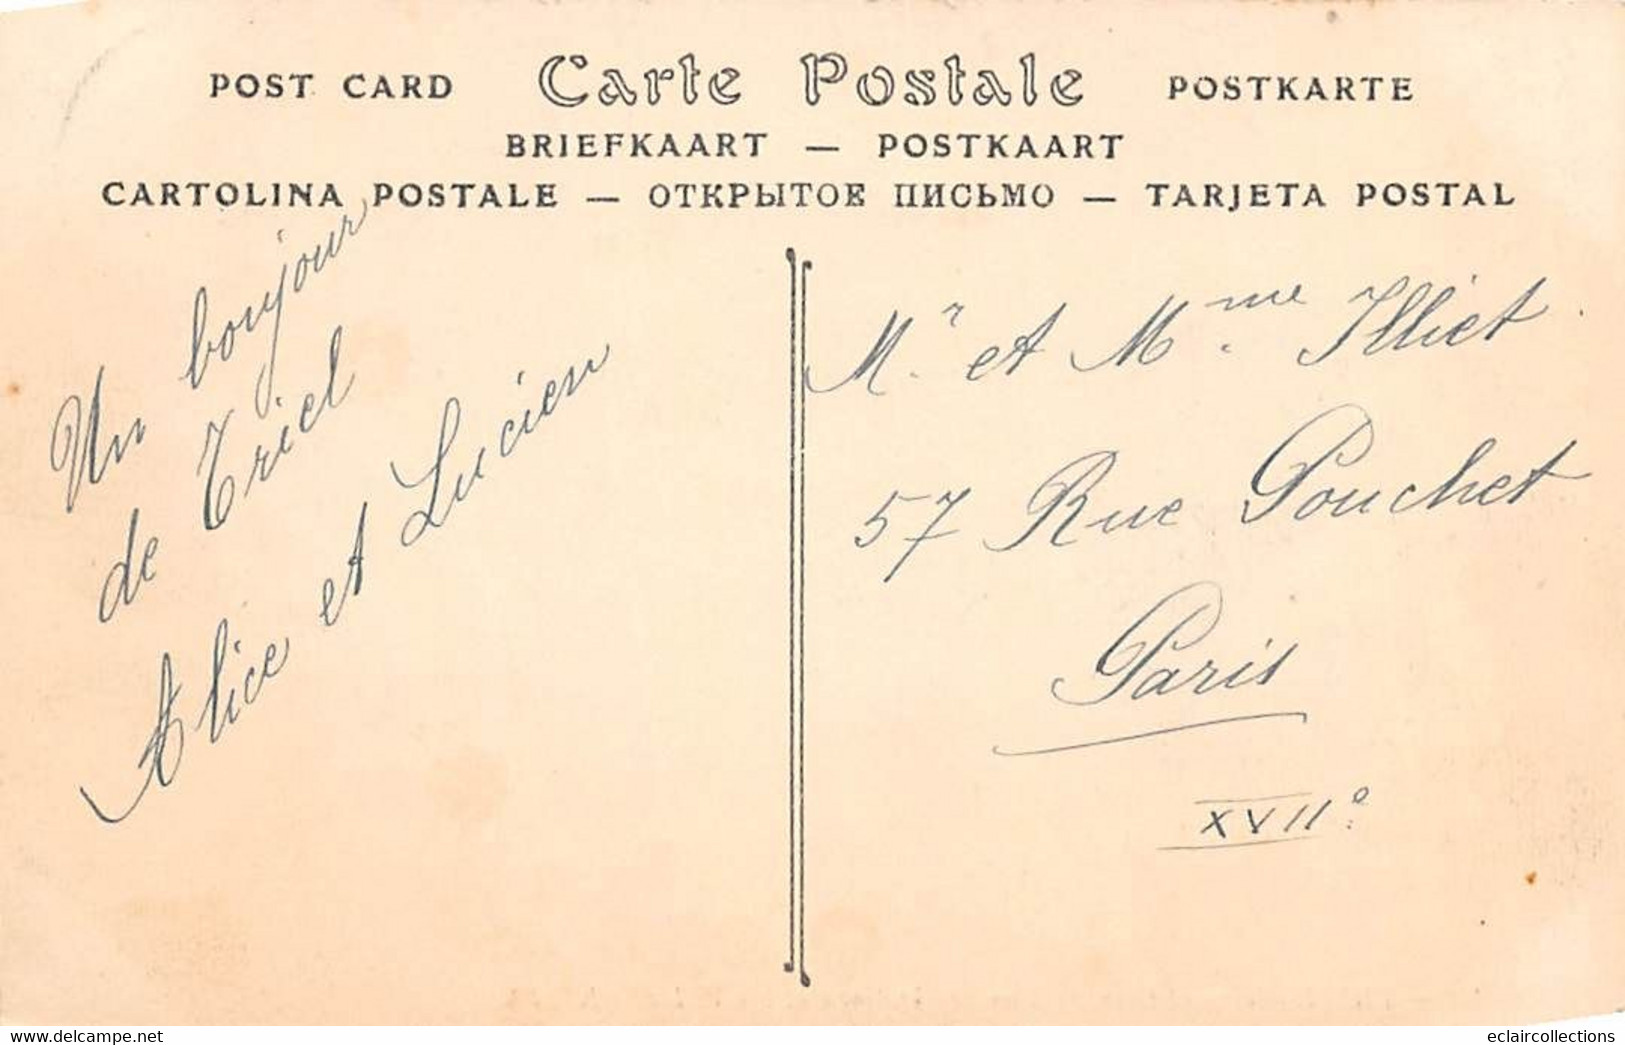 POST CARD Carte Postale POSTKARTE
BRIEFKAART — POSTKAART
CARTOLINA POSTALE — ОТКРЫТОЕ ПИСЬМО — TARJETA POSTAL
Un bonjour
de Triel
Alice et Lucien
Mr. et Mme Illiet
57 Rue Pouchet
Paris
XVIIe.
www.delcampe.net
eclaircollections